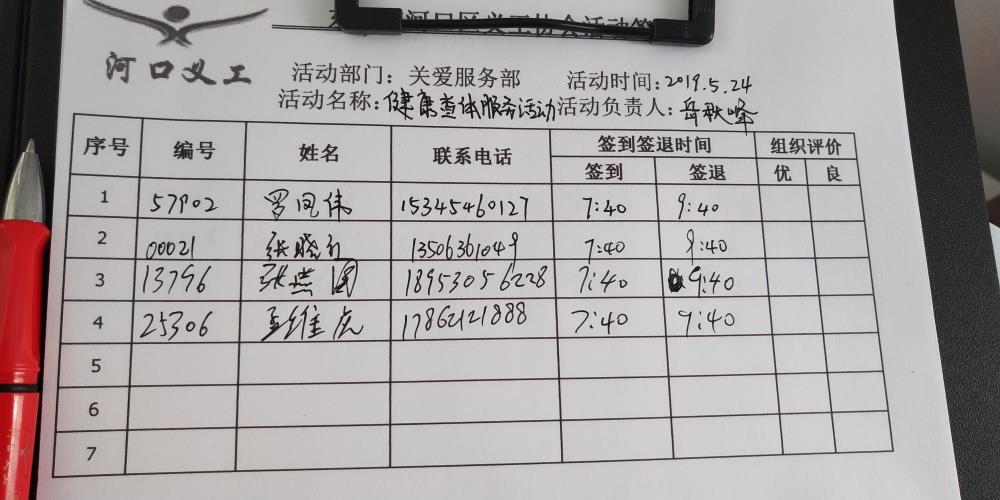 河口区义工协会活动签
河口义工
活动部门：关爱服务部 活动时间：2019.5.24
活动名称：健康查体服务活动 活动负责人：岳秋峰
序号 编号 姓名 联系电话 签到签退时间 组织评价
签到 签退 优 良
1 57902 罗凤伟 15345460127 7:40 9:40
2 00021 张晓红 13506361049 7:40 9:40
3 13796 张燕 18953056228 7:40 9:40
4 25306 孟维虎 17862121888 7:40 9:40
5
6
7